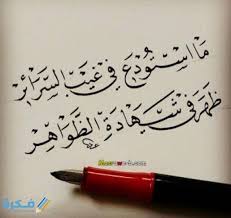 مَا اسْتُودِعَ فِي غَيْبِ السَّرَائِرِ
ظَهَرَ فِي شَهَادَةِ الظَّوَاهِرِ
فكرة